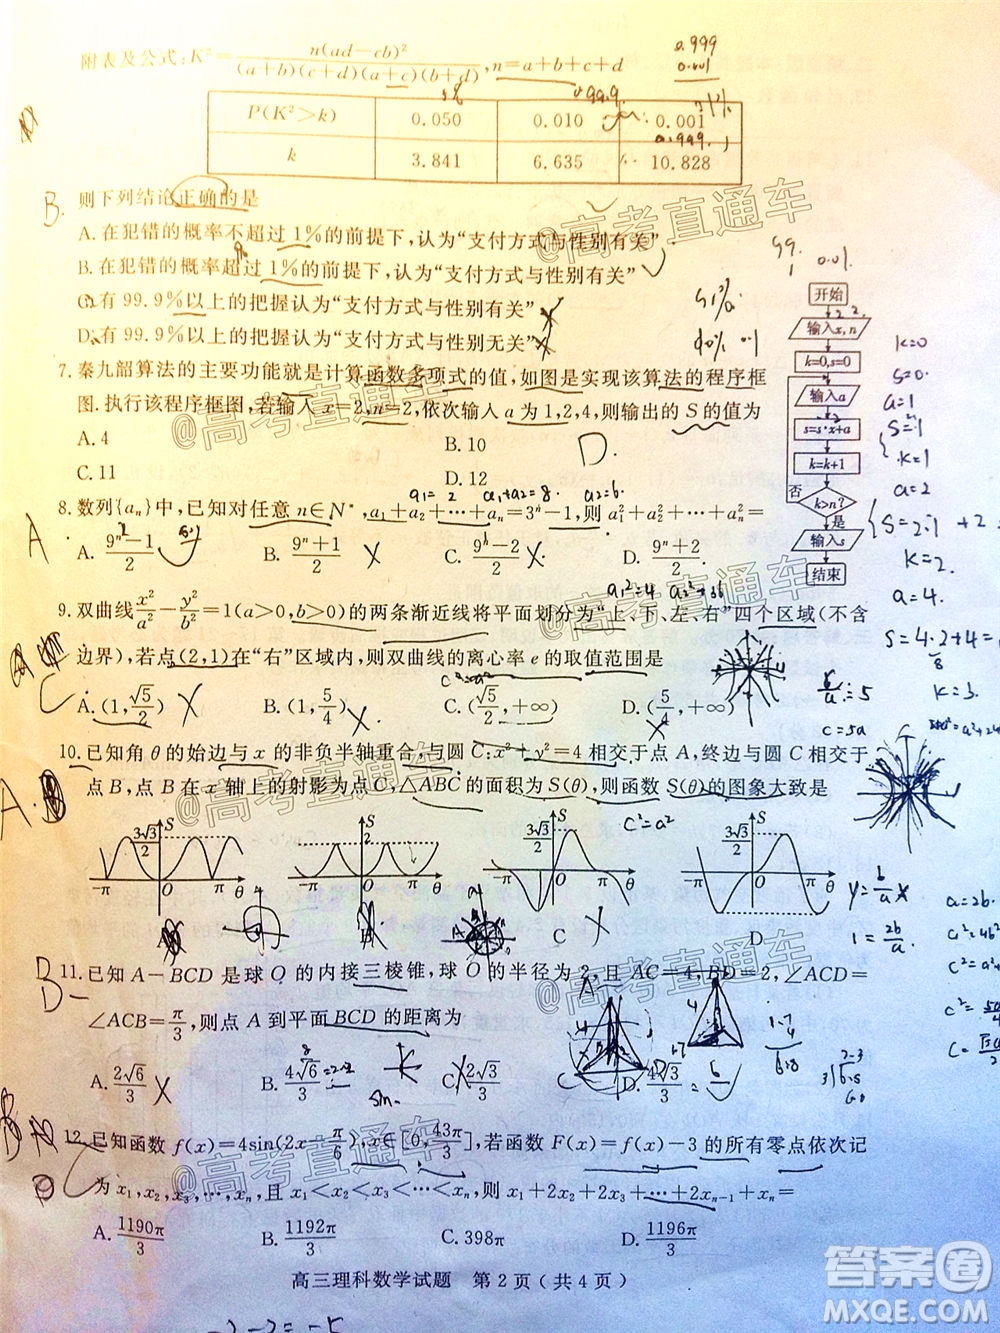 附表及公式:K²=n(ad-cb)²/((a+b)(c+d)(a+c)(b+d)),n=a+b+c+d
0.999
0.001
P(K²>k) 0.050 0.010 0.001
k 3.841 6.635 10.828
B. 则下列结论正确的是
A.在犯错的概率不超过1%的前提下,认为“支付方式与性别有关”
B.在犯错的概率超过1%的前提下,认为“支付方式与性别有关”
C.有99.9%以上的把握认为“支付方式与性别有关”
D.有99.9%以上的把握认为“支付方式与性别无关”
7.秦九韶算法的主要功能就是计算函数多项式的值,如图是实现该算法的程序框
图.执行该程序框图,若输入x=2,n=2,依次输入a为1,2,4,则输出的S的值为
A.4 B.10
C.11 D.12
D
开始
输入x,n
k=0,s=0
输入a
s=s·x+a
k=k+1
k>n?
否
是
输入s
结束
k=0
S=0.
a=1
k=1
a=2
k=2
a=4.
k=3.
8.数列{aₙ}中,已知对任意n∈N*,a₁+a₂+…+aₙ=3ⁿ-1,则a₁²+a₂²+…+aₙ²=
a₁=2 a₁+a₂=8. a₂=6.
A
A.(9ⁿ-1)/2 B.(9ⁿ+1)/2 C.(9ⁿ-2)/2 D.(9ⁿ+2)/2
9.双曲线x²/a²-y²/b²=1(a>0,b>0)的两条渐近线将平面划分为“上、下、左、右”四个区域(不含
边界),若点(2,1)在“右”区域内,则双曲线的离心率e的取值范围是
A.(1,√5/2) B.(1,5/4) C.(√5/2,+∞) D.(5/4,+∞)
10.已知角θ的始边与x的非负半轴重合,与圆C:x²+y²=4相交于点A,终边与圆C相交于
点B,点B在x轴上的射影为点C,△ABC的面积为S(θ),则函数S(θ)的图象大致是
A.
c²=a²
3√3/2 S -π O π θ
S 2 -π O π θ
3√3/2 S -π O π θ
3√3/2 S -π O π θ
C D
B
11.已知A-BCD是球O的内接三棱锥,球O的半径为2,且AC=4,BD=2,∠ACD=
∠ACB=π/3,则点A到平面BCD的距离为
A.2√6/3 B.4√6/3 C.2√3/3 D.4√3/3
12.已知函数f(x)=4sin(2x-π/6),x∈[0,43π/3],若函数F(x)=f(x)-3的所有零点依次记
为x₁,x₂,x₃,…,xₙ,且x₁<x₂<x₃<…<xₙ,则x₁+2x₂+2x₃+…+2xₙ₋₁+xₙ=
A.1190π/3 B.1192π/3 C.398π D.1196π/3
高三理科数学试题 第2页(共4页)
-2-3=-5
@高考直通车
@高考直通车
@高考直通车
@高考直通车
@高考直通车
@高考直通车
答案圈
MXQE.COM